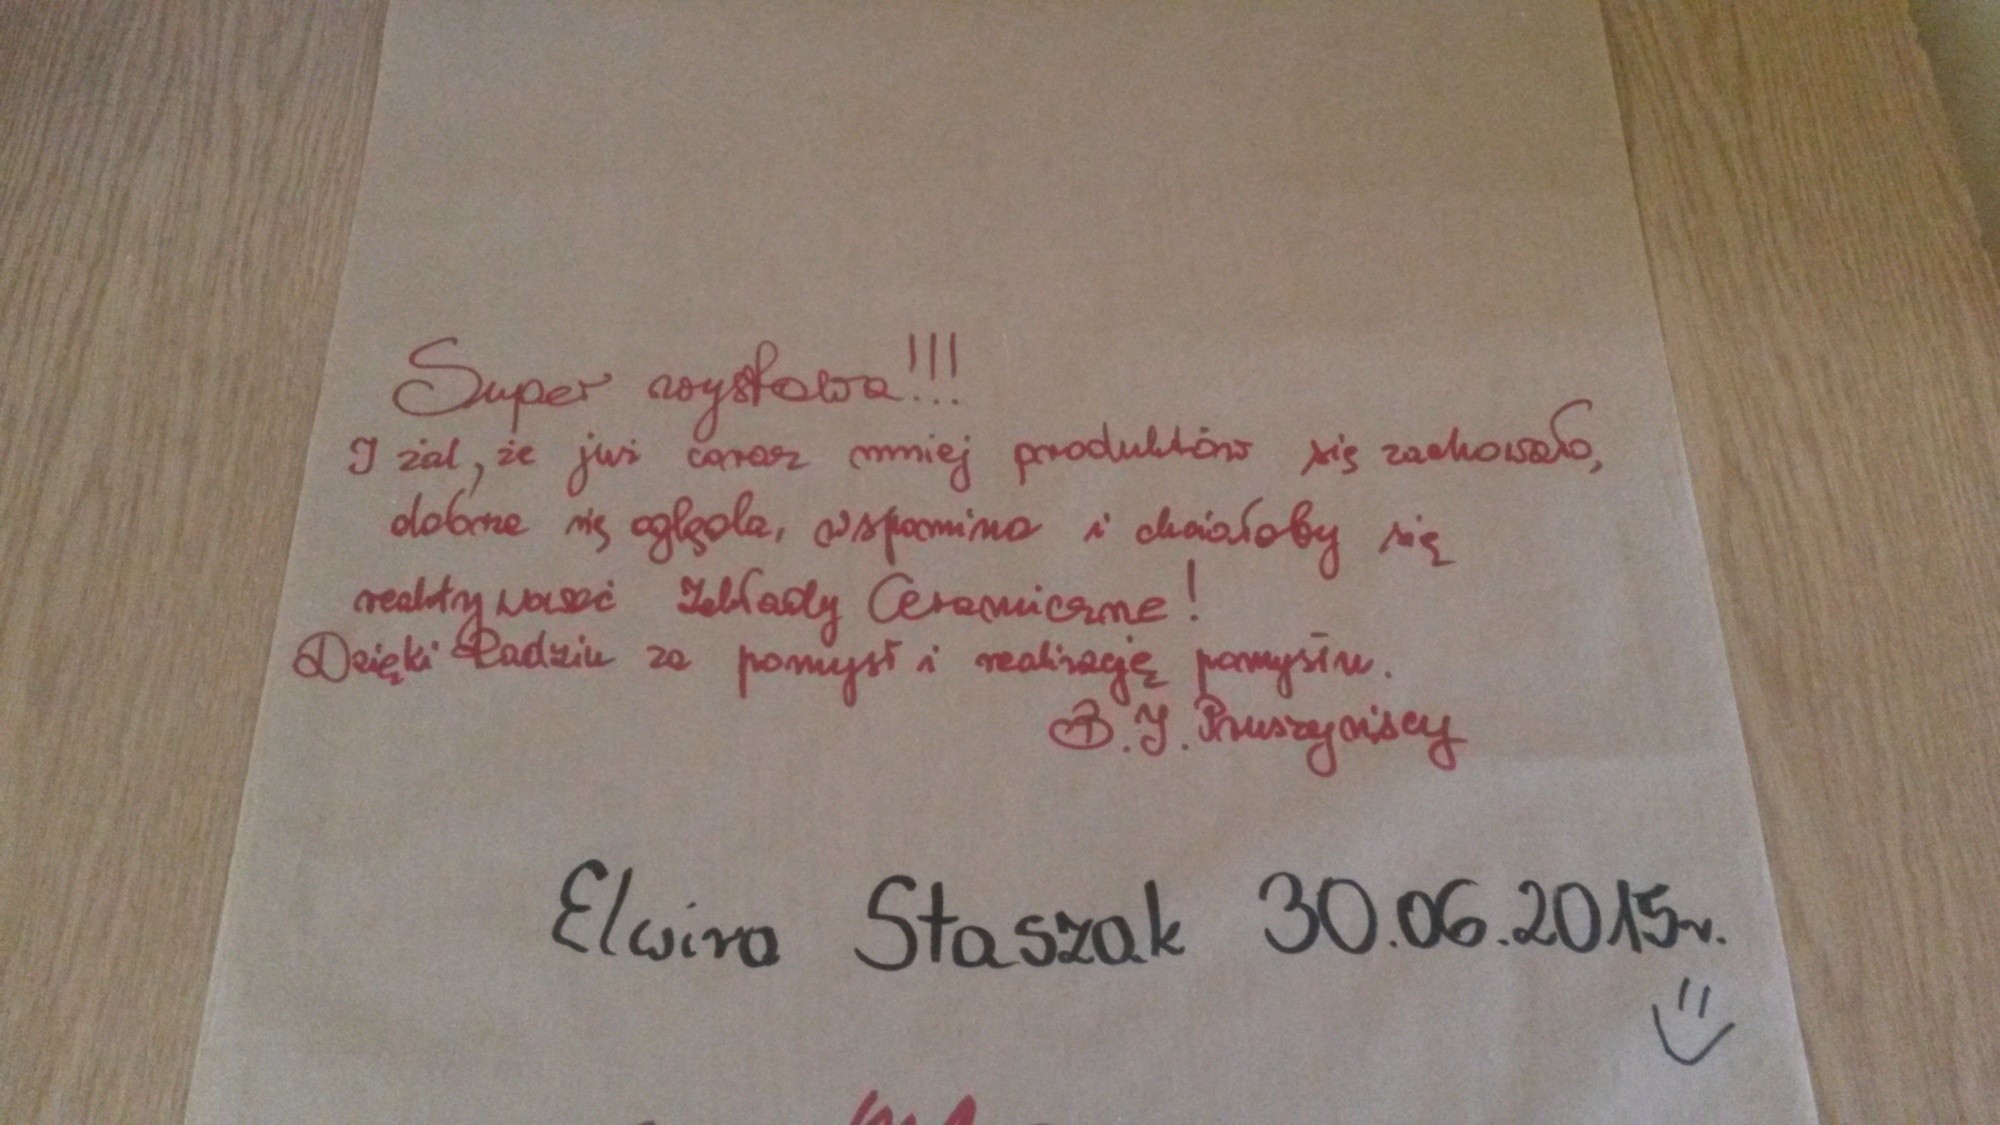 Super wystawa!!!
I żal, że już coraz mniej produktów się zachowało,
dobrze się ogląda, wspomina i chciałoby się
reaktywować Zakłady Ceramiczne!
Dzięki Radziu za pomysł i realizację pomysłu.
B. J. Pruszyńscy
Elwira Staszak 30.06.2015r.